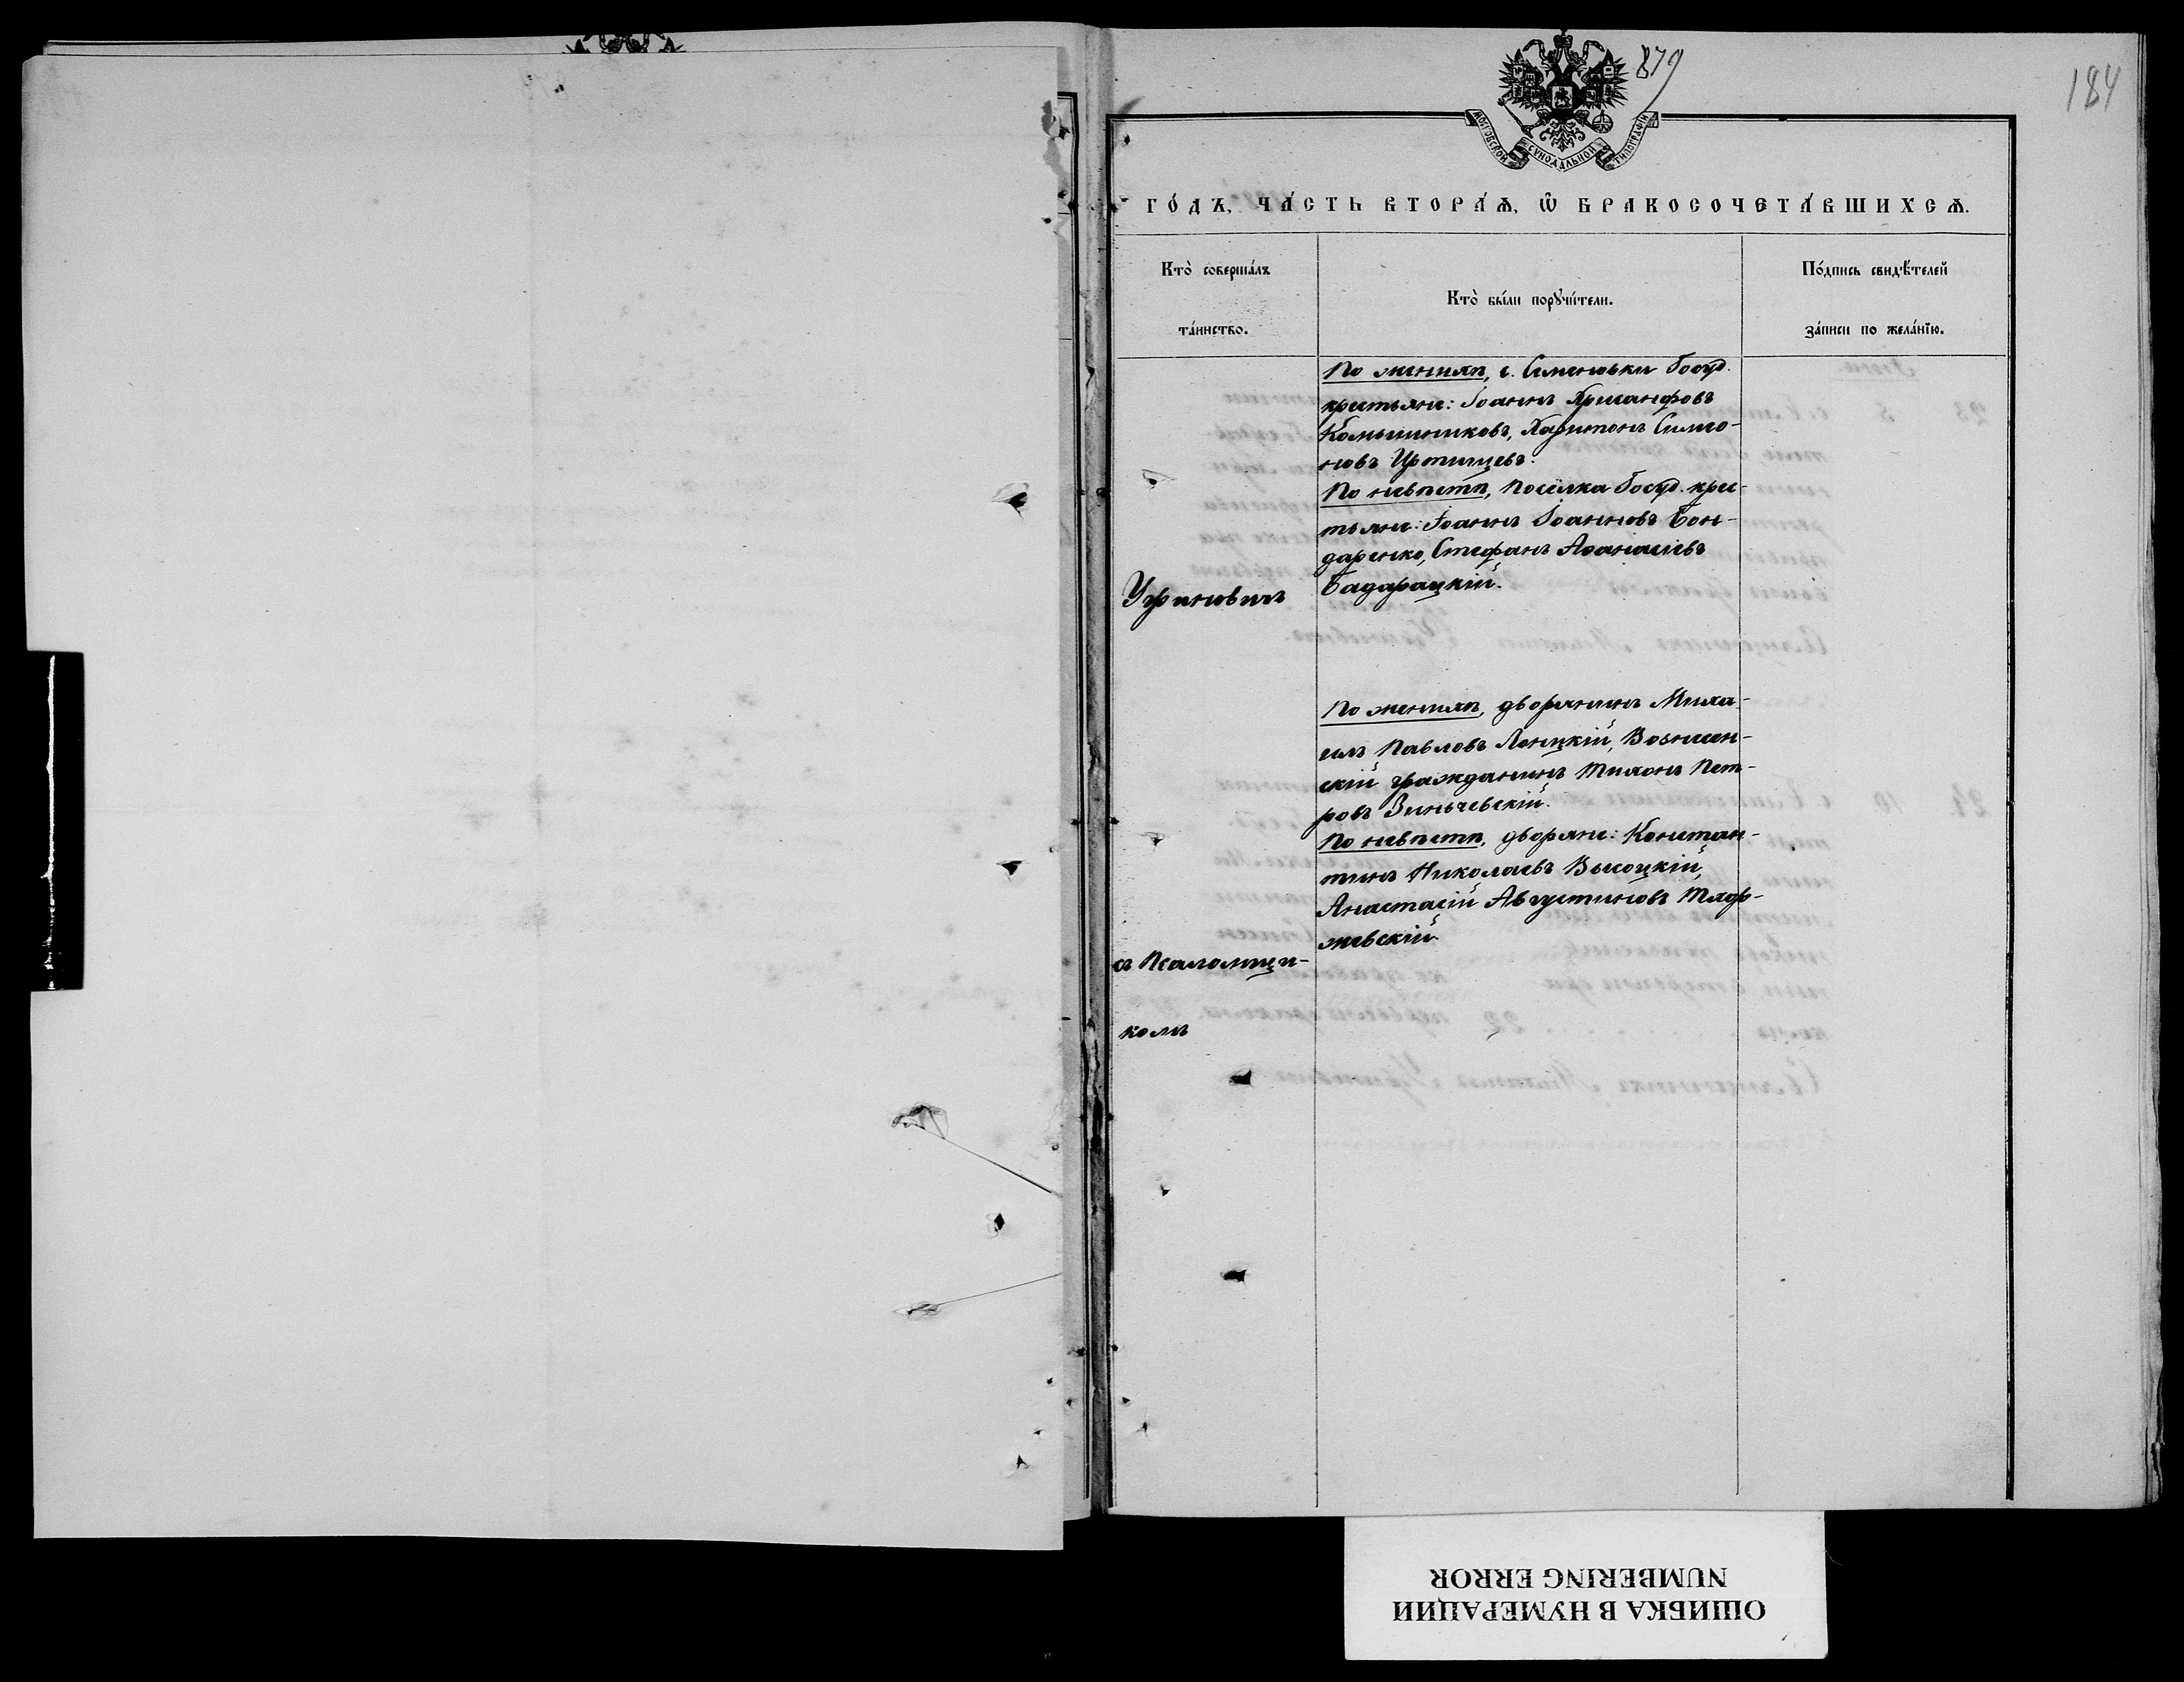 879
184
МОСКОВСКОЙ СУНОДАЛЬНОЙ ТИПОГРАФІИ
ГО́ДЪ, ЧА́СТЬ ВТОРА́Я, Ѡ҆ БРАКОСОЧЕТА́ВШИХСЯ.
Кто̀ соверша́лъ
та́инство.
Кто̀ бы́ли порꙋчи́тели.
По́дпись свидѣ́телей
за́писи по жела́нїю.
По женихѣ, с. Семеновки Госуд.
крестьяне: Іоаннъ Хрисанфовъ
Комышниковъ, Харитонъ Симео-
новъ Иртищевъ.
По невѣстѣ, Посёлка Госуд. крес-
тьяне: Іоаннъ Іоанновъ Бон-
даренко, Стефанъ Аѳанасіевъ
Бадарацкій.
Угриновичъ
По женихѣ, дворянинъ Миха-
илъ Павловъ Лонцкій, Вознесен-
скій гражданинъ Тихонъ Пет-
ровъ Зиньчевскій.
По невѣстѣ, дворяне: Констан-
тинъ Николаевъ Высоцкій,
Анастасій Августиновъ
жевскій.
съ Псаломщи-
комъ
ОШИБКА В НУМЕРАЦИИ
NUMBERING ERROR